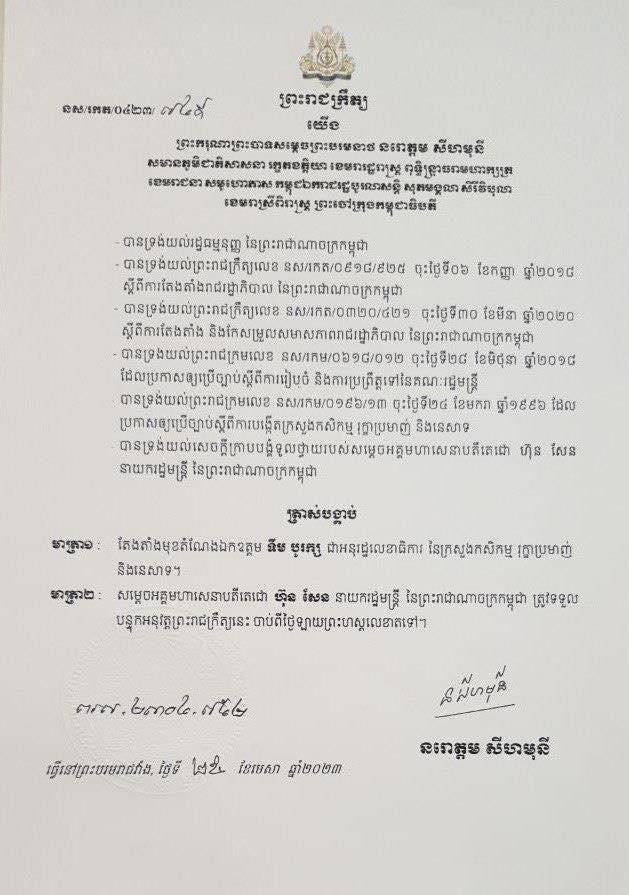 នស/រកត/០៤២៣/
ព្រះរាជក្រឹត្យ
យើង
ព្រះករុណាព្រះបាទសម្តេចព្រះបរមនាថ នរោត្តម សីហមុនី
សមានភូមិជាតិសាសនា រក្ខតខត្តិយា ខេមរារដ្ឋរាស្ត្រ ពុទ្ធិន្ទ្រាធរាមហាក្សត្រ
ខេមរាជនា សមូហោភាស កម្ពុជឯករាជរដ្ឋបូរណសន្តិ សុភមង្គលា សិរីវិបុលា
ខេមរាស្រីពិរាស្ត្រ ព្រះចៅក្រុងកម្ពុជាធិបតី
- បានទ្រង់យល់រដ្ឋធម្មនុញ្ញ នៃព្រះរាជាណាចក្រកម្ពុជា
- បានទ្រង់យល់ព្រះរាជក្រឹត្យលេខ នស/រកត/០៩១៨/៩២៥ ចុះថ្ងៃទី០៦ ខែកញ្ញា ឆ្នាំ២០១៨
ស្តីពីការតែងតាំងរាជរដ្ឋាភិបាល នៃព្រះរាជាណាចក្រកម្ពុជា
- បានទ្រង់យល់ព្រះរាជក្រឹត្យលេខ នស/រកត/០៣២០/៤២១ ចុះថ្ងៃទី៣០ ខែមីនា ឆ្នាំ២០២០
ស្តីពីការតែងតាំង និងកែសម្រួលសមាសភាពរាជរដ្ឋាភិបាល នៃព្រះរាជាណាចក្រកម្ពុជា
- បានទ្រង់យល់ព្រះរាជក្រមលេខ នស/រកម/០៦១៨/០១២ ចុះថ្ងៃទី២៨ ខែមិថុនា ឆ្នាំ២០១៨
ដែលប្រកាសឲ្យប្រើច្បាប់ស្តីពីការរៀបចំ និងការប្រព្រឹត្តទៅនៃគណៈរដ្ឋមន្ត្រី
- បានទ្រង់យល់ព្រះរាជក្រមលេខ នស/រកម/០១៩៦/១៣ ចុះថ្ងៃទី២៤ ខែមករា ឆ្នាំ១៩៩៦ ដែល
ប្រកាសឲ្យប្រើច្បាប់ស្តីពីការបង្កើតក្រសួងកសិកម្ម រុក្ខាប្រមាញ់ និងនេសាទ
- បានទ្រង់យល់សេចក្តីក្រាបបង្គំទូលថ្វាយរបស់សម្តេចអគ្គមហាសេនាបតីតេជោ ហ៊ុន សែន
នាយករដ្ឋមន្ត្រី នៃព្រះរាជាណាចក្រកម្ពុជា
ត្រាស់បង្គាប់
មាត្រា១ : តែងតាំងមុខតំណែងឯកឧត្តម ទឹម បូរក្ស ជាអនុរដ្ឋលេខាធិការ នៃក្រសួងកសិកម្ម រុក្ខាប្រមាញ់
និងនេសាទ។
មាត្រា២ : សម្តេចអគ្គមហាសេនាបតីតេជោ ហ៊ុន សែន នាយករដ្ឋមន្ត្រី នៃព្រះរាជាណាចក្រកម្ពុជា ត្រូវទទួល
បន្ទុកអនុវត្តព្រះរាជក្រឹត្យនេះ ចាប់ពីថ្ងៃឡាយព្រះហស្តលេខាតទៅ។
ព្រហ.២៣០៤.៧៥២
ន សីហមុនី
នរោត្តម សីហមុនី
ធ្វើនៅព្រះបរមរាជវាំង, ថ្ងៃទី ខែមេសា ឆ្នាំ២០២៣